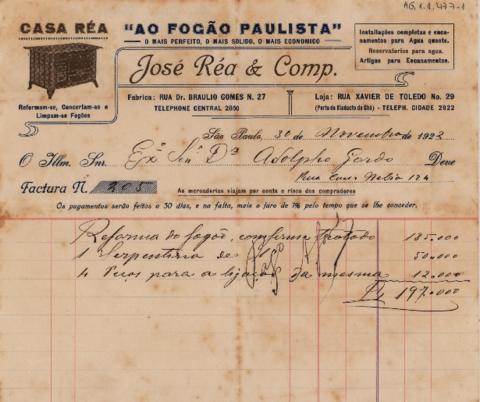 AG.1.1.477-1
CASA RÉA
"AO FOGÃO PAULISTA"
O MAIS PERFEITO, O MAIS SOLIDO, O MAIS ECONOMICO
Installações completas e enca-
namentos para Agua quente.
Reservatorios para agua.
Artigos para Encanamentos.
José Réa & Comp.
Reformam-se, Concertam-se e
Limpam-se Fogões
Fabrica: RUA Dr. BRAULIO GOMES N. 27
TELEPHONE CENTRAL 2850
Loja: RUA XAVIER DE TOLEDO No. 29
(Perto do Viaducto do Chá) - TELEPH. CIDADE 2922
São Paulo, 30 de Novembro de 1922
O Illm. Snr. Exª Senª Dª Adolpho Gordo Deve
Rua 124
Factura N. 205
As mercadorias viajam por conta e risco dos compradores
Os pagamentos serão feitos a 30 dias, e na falta, mais o juro de 1% pelo tempo que se lhe conceder.
Reforma do fogão, conforme tratado 135.000
1 Serpentina de 50.000
4 para a da mesma 12.000
197.000
Pago